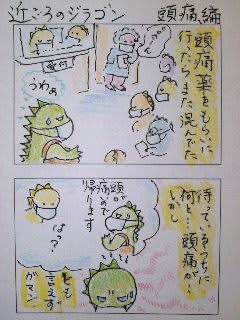 近ごろのジラゴン 頭痛編
頭痛薬をもらいに
行ったらまた混んでた
受付
うわぁ
待っているうちに
何と、頭痛が…
しかし
頭が
痛いので
帰ります
はっ?
とも
言えず
ガマン